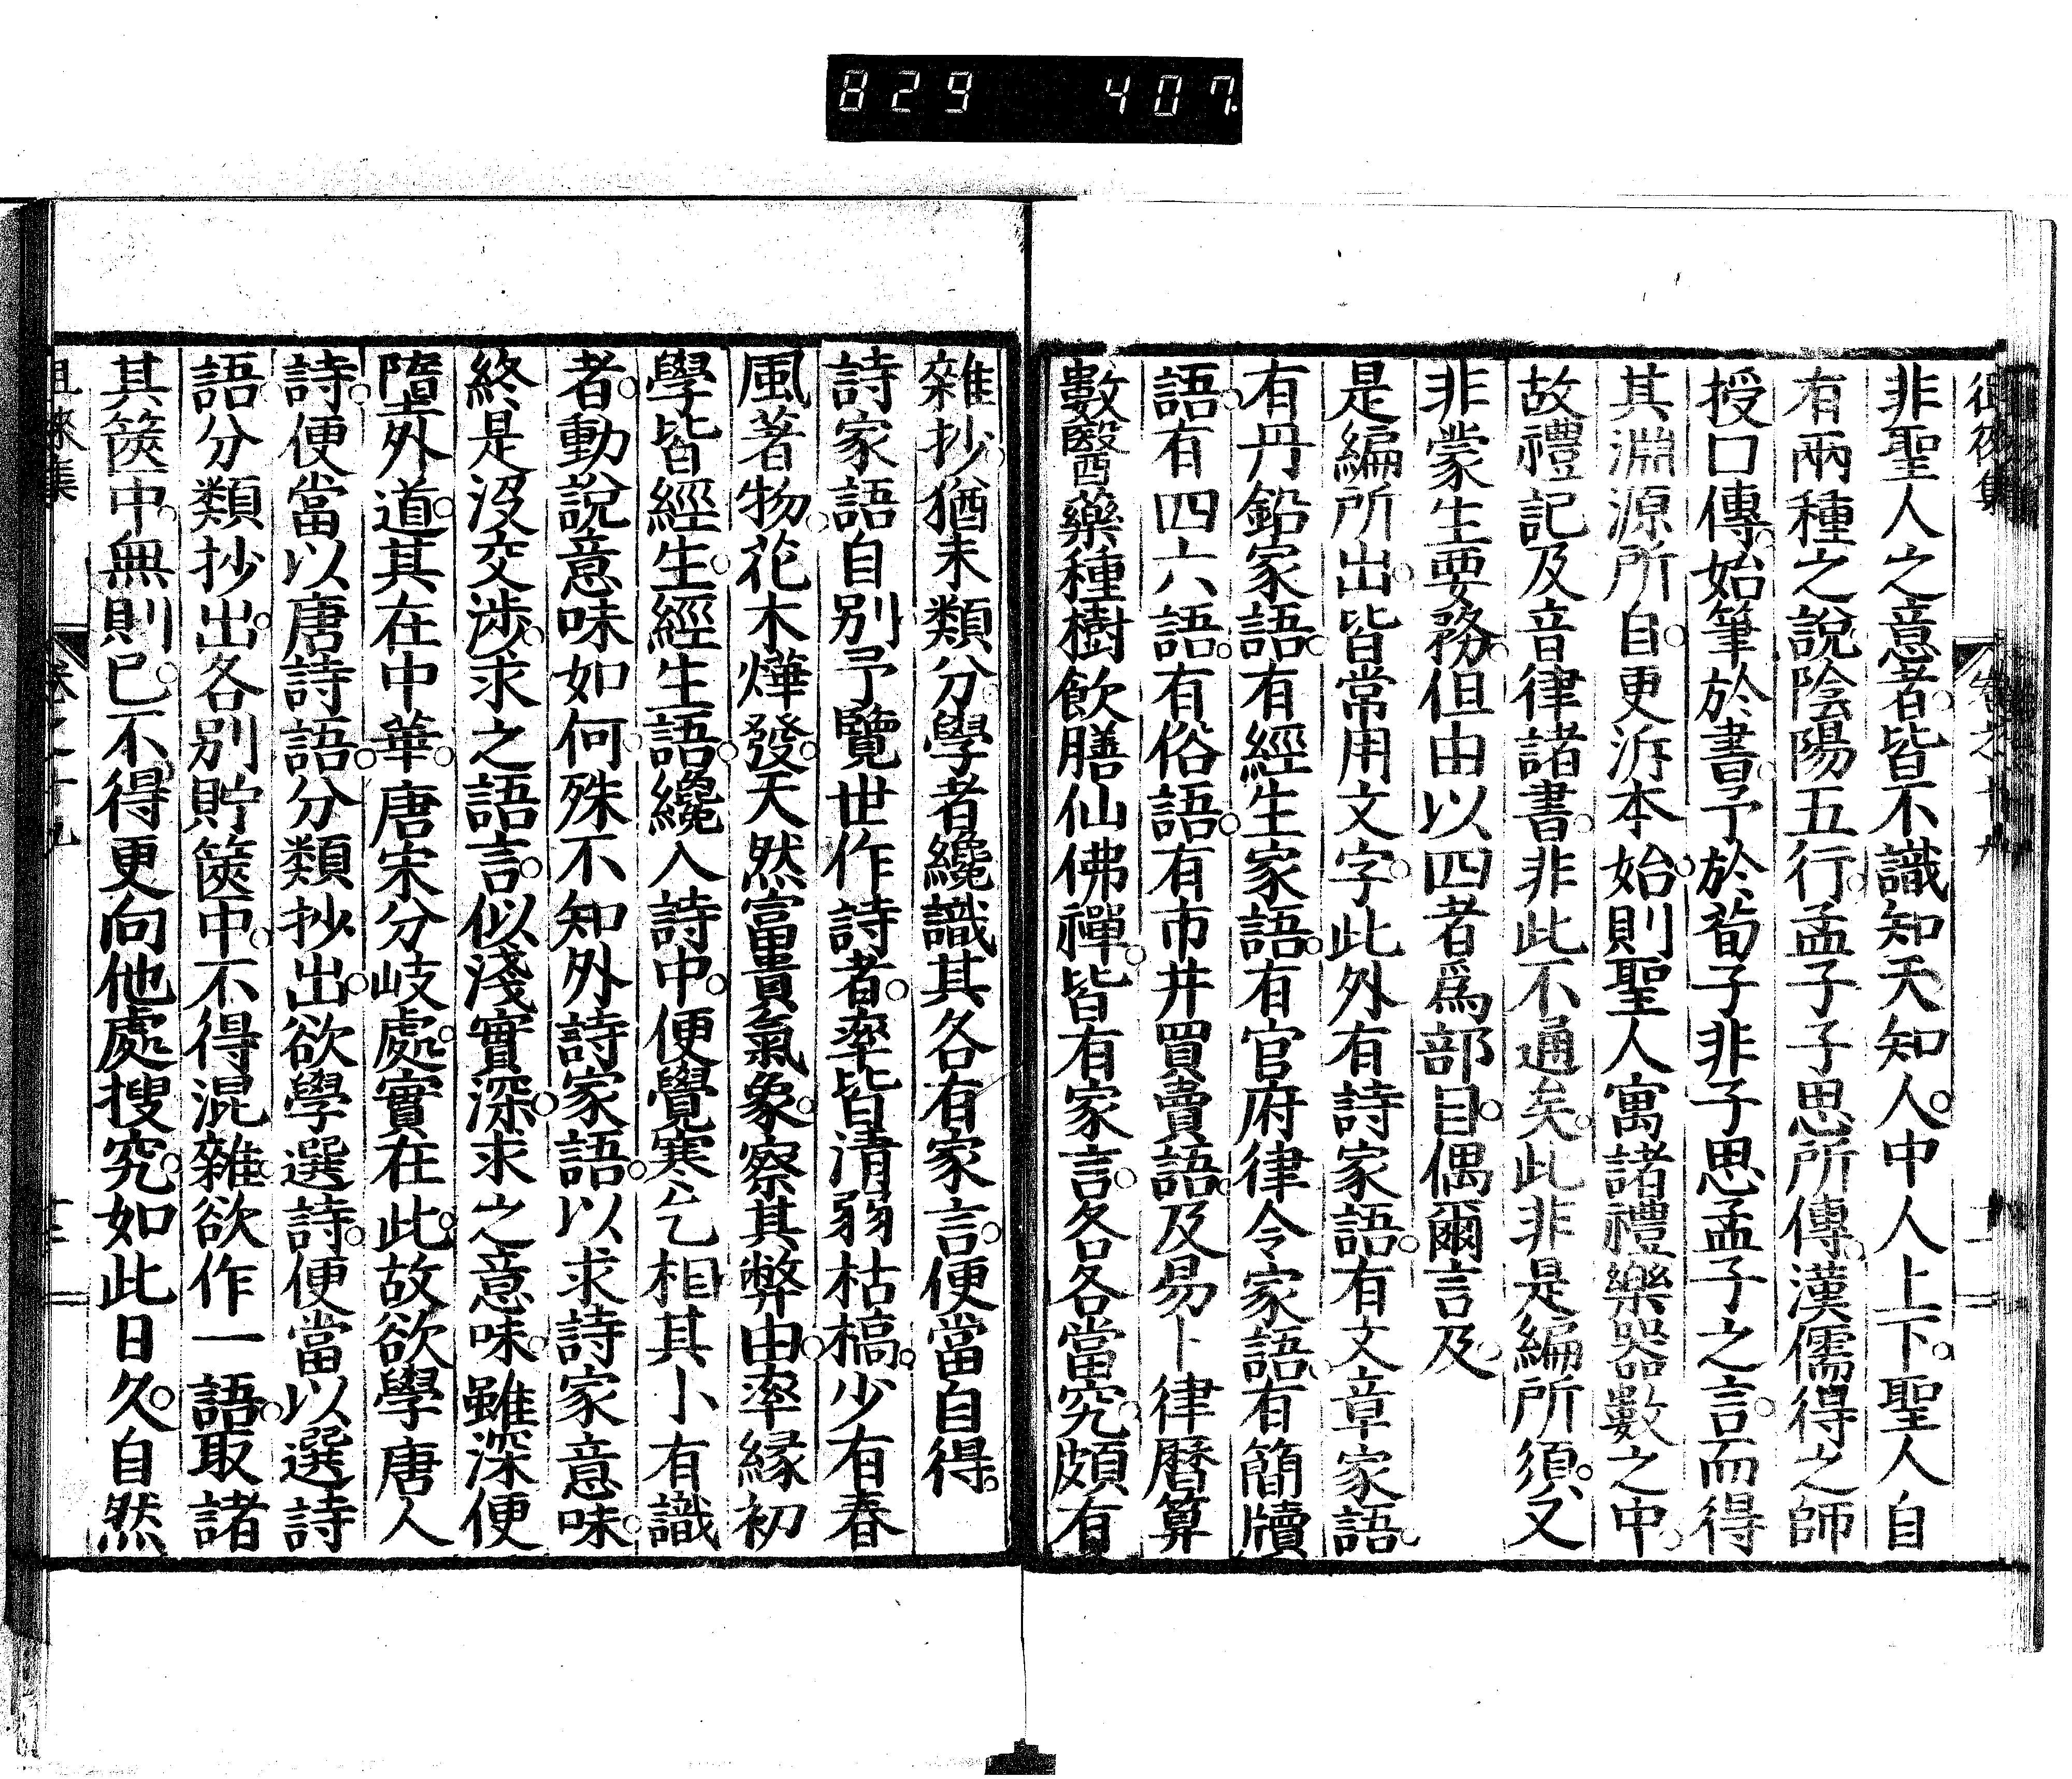 829 407
非聖人之意者。皆不識知天知人。中人上下。聖人自
有兩種之說陰陽五行。孟子子思所傳。漢儒得之師
授口傳。始筆於書。予於荀子非子思孟子之言。而得
其淵源所自。更泝本始。則聖人寓諸禮樂器數之中。
故禮記及音律諸書。非此不通矣。此非是編所須。又
非蒙生要務。但由以四者爲部目。偶爾言及。
是編所出。皆常用文字。此外有詩家語。有文章家語。
有丹鉛家語。有經生家語。有官府律令家語。有簡牘
語。有四六語。有俗語。有市井買賣語。及易卜律曆算
數醫藥種樹飲膳仙佛禪。皆有家言。各各當究。頗有
雜抄。猶未類分。學者纔識其各有家言。便當自得。
詩家語自別予覽世作詩者。率皆清弱枯槁。少有春
風著物。花木燁發。天然富貴氣象。察其弊由。率緣初
學皆經生。經生語。纔入詩中。便覺寒乞相其小有識
者。動說意味如何。殊不知外詩家語。以求詩家意味。
終是沒交涉。求之語言。似淺實深。求之意味。雖深便
隨外道。其在中華。唐宋分岐處。實在此。故欲學唐人
詩。便當以唐詩語。分類抄出。欲學選詩。便當以選詩
語分類抄出。各別貯篋中。不得混雜。欲作一語。取諸
其篋中。無則已。不得更向他處搜究。如此日久。自然
徂徠集 卷之十九 十二